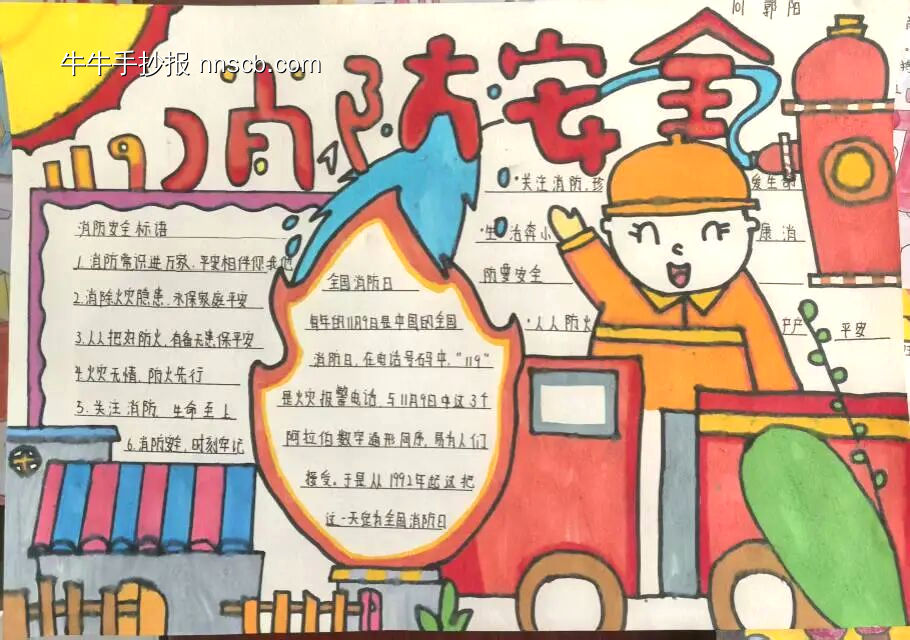 牛牛手抄报 nnscb.com
郭阳
119消防安全
消防安全标语
1.消防常识进万家,平安相伴你我他
2.消除火灾隐患,永保家庭平安
3.人人把好防火,有备无患保平安
4.火灾无情,防火先行
5.关注消防 生命至上
6.消防安全,时刻牢记
全国消防日
每年的11月9日是中国的全国
消防日,在电话号码中,"119"
是火灾报警电话,与11月9日中这3个
阿拉伯数字遍形同序,易为人们
接受。于是从1992年起这把
这一天定为全国消防日
·关注消防,珍
·生活奔小 康 消
防要安全
·人人防火 户户 平安